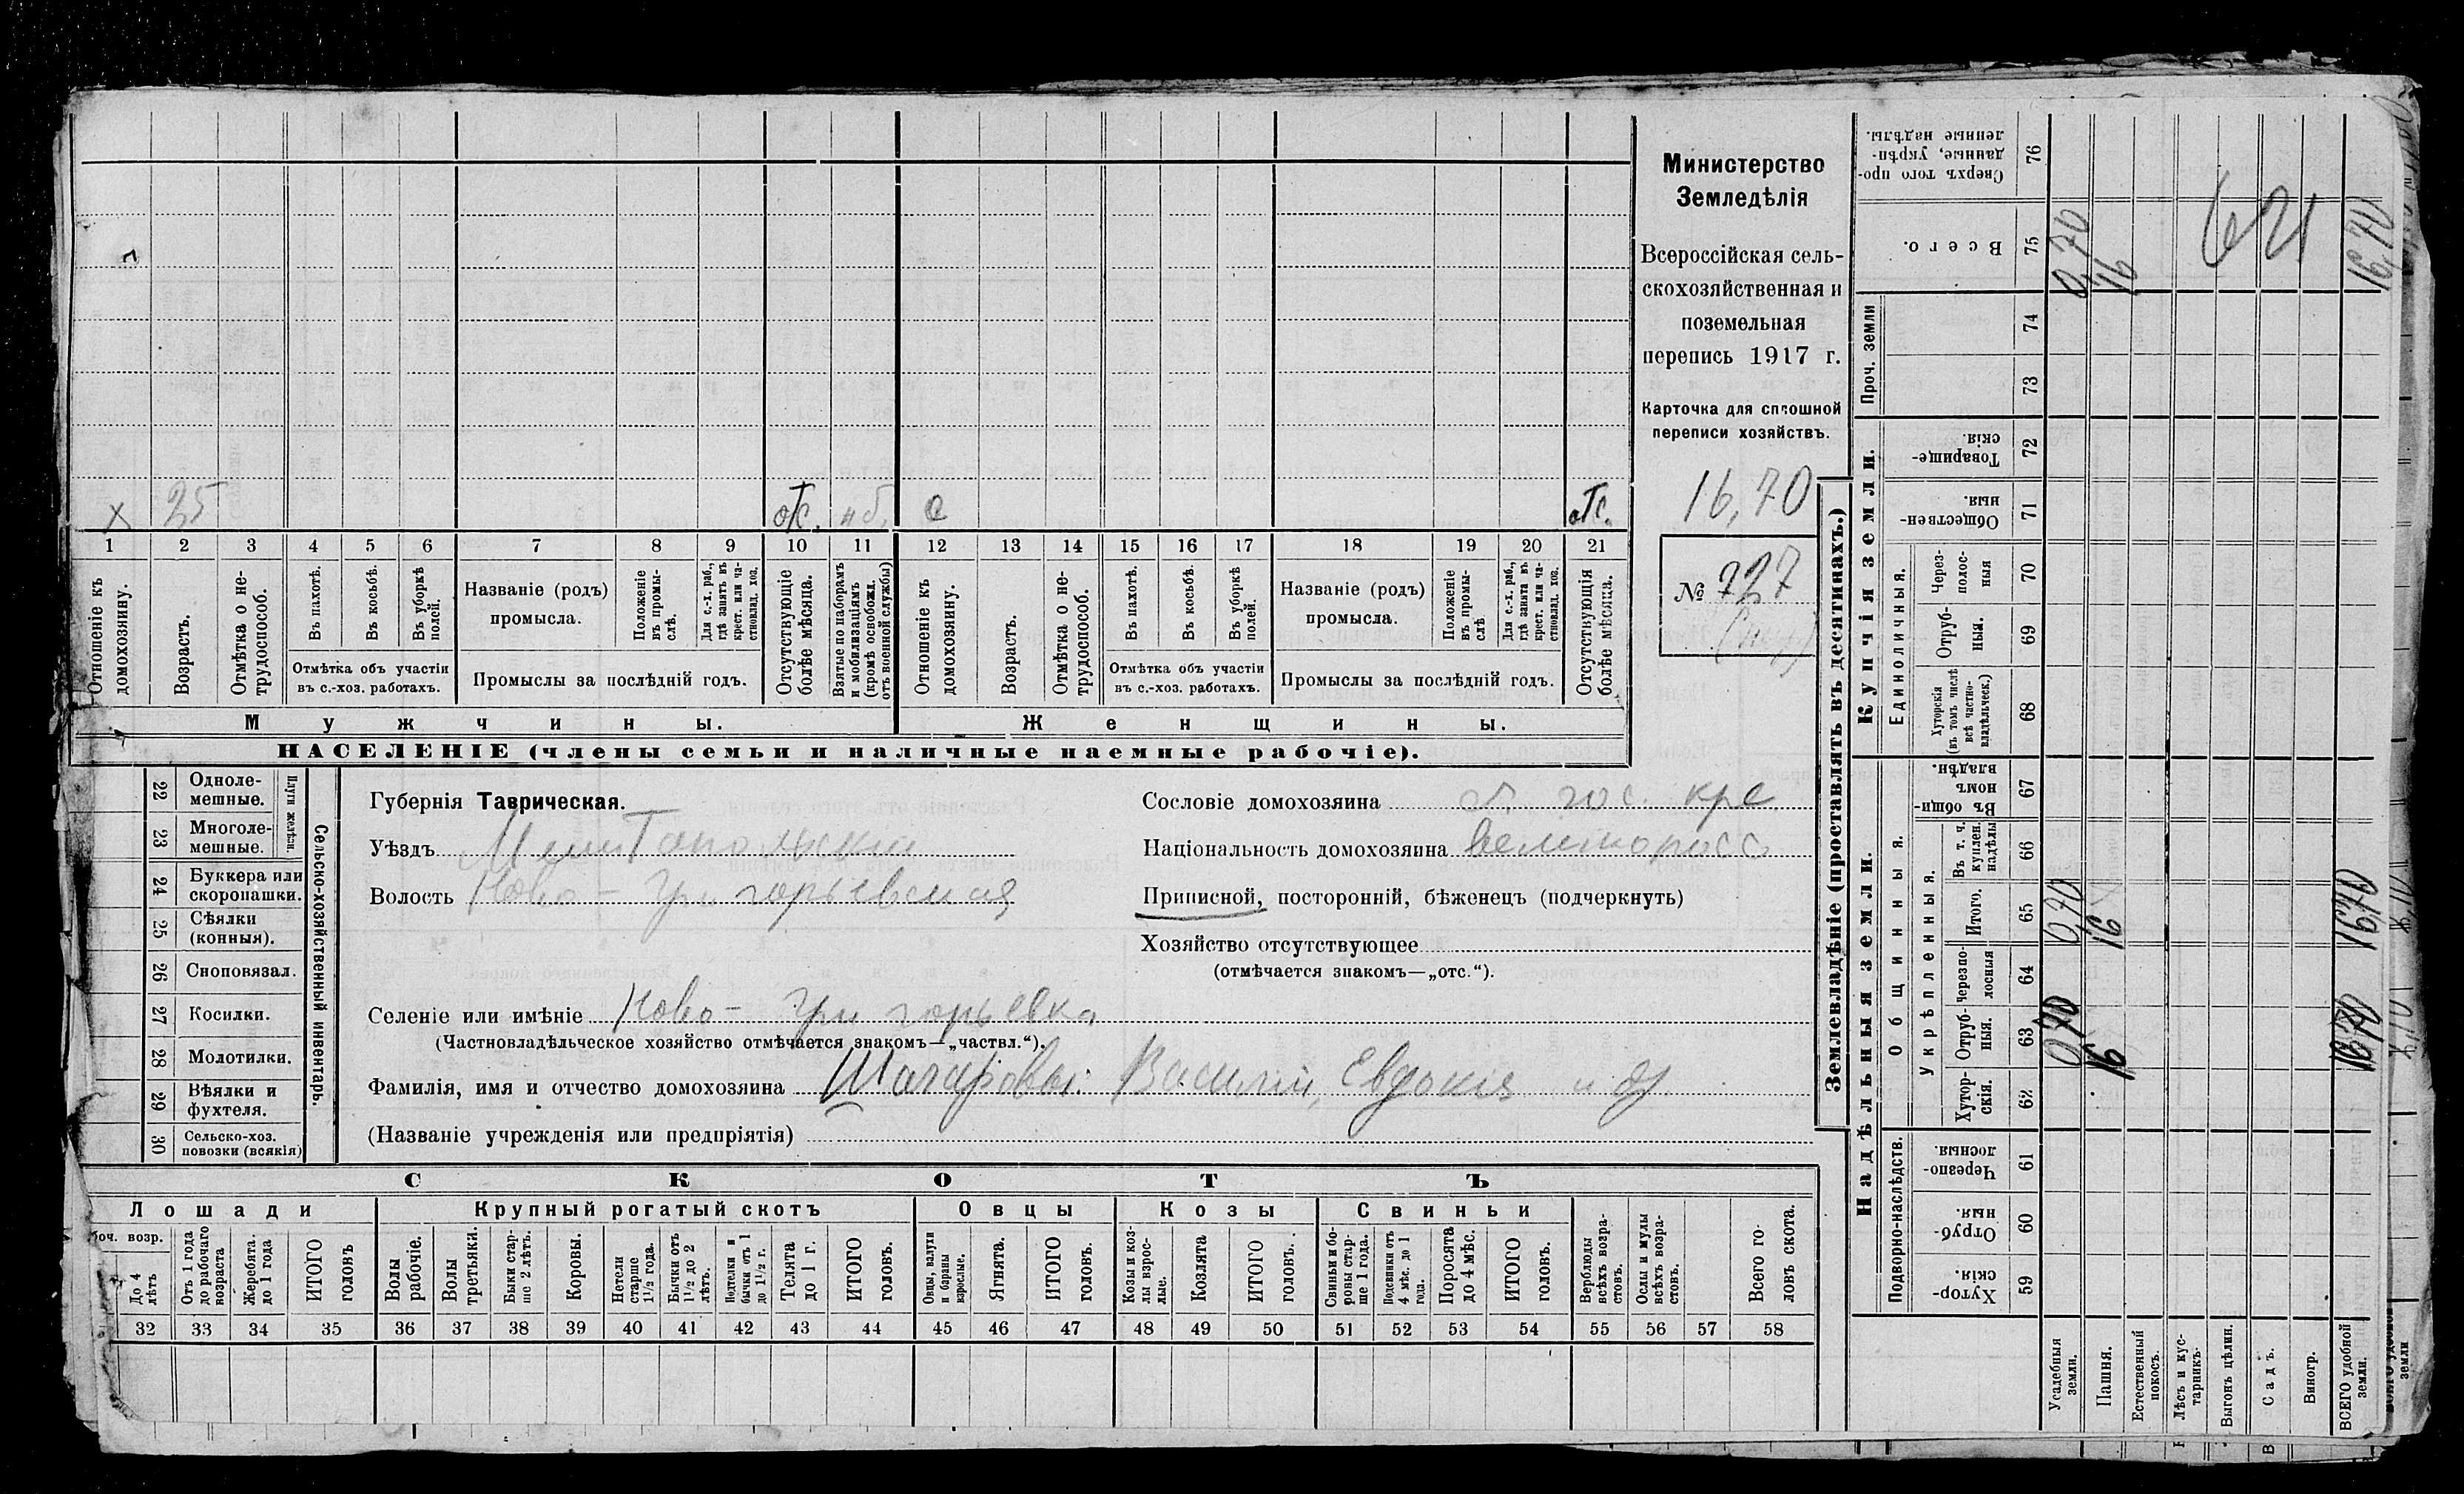 Министерство
Земледѣлія
Всероссійская сель-
скохозяйственная и
поземельная
перепись 1917 г.
Карточка для сплошной
переписи хозяйствъ.
16,70
№ 727
х 25 отс. н б. с отс.
1 2 3 4 5 6 7 8 9 10 11 12 13 14 15 16 17 18 19 20 21
Отношеніе къ домохозяину.
Возрастъ.
Отмѣтка о не-трудоспособ.
Въ пахотѣ.
Въ косьбѣ.
Въ уборкѣ полей.
Отмѣтка объ участіи
въ с.-хоз. работахъ.
Названіе (родъ)
промысла.
Положеніе въ промы-слѣ.
Для с.-х. раб., гдѣ занятъ въ крест. или ча-стновлад. хоз.
Промыслы за послѣдній годъ.
Отсутствующіе болѣе мѣсяца.
Взятые по наборамъ и мобилизаціямъ (кромѣ освобожд. отъ военной службы)
Отношеніе къ домохозяину.
Возрастъ.
Отмѣтка о не-трудоспособ.
Въ пахотѣ.
Въ косьбѣ.
Въ уборкѣ полей.
Отмѣтка объ участіи
въ с.-хоз. работахъ.
Названіе (родъ)
промысла.
Положеніе въ промы-слѣ
Для с.-х. раб., гдѣ занята въ крест. или ча-стновлад. хоз.
Промыслы за послѣдній годъ.
Отсутствующія болѣе мѣсяца.
Мужчины.
Женщины.
НАСЕЛЕНІЕ (члены семьи и наличные наемные рабочіе).
22 Одноле-мешные.
23 Многоле-мешные.
Плуги желѣзн.
24 Буккера или скоропашки.
25 Сѣялки (конныя).
26 Сноповязал.
27 Косилки.
28 Молотилки.
29 Вѣялки и фухтеля.
30 Сельско-хоз. повозки (всякія)
Сельско-хозяйственный инвентарь.
Губернія Таврическая.
Уѣздъ Мелитопольскій
Волость Ново-Григорьевская
Сословіе домохозяина гос. кре
Національность домохозяина великоросс
Приписной, посторонній, бѣженецъ (подчеркнуть)
Хозяйство отсутствующее
(отмѣчается знакомъ—„отс.“).
Селеніе или имѣніе Ново-Григорьевка
(Частновладѣльческое хозяйство отмѣчается знакомъ—„частвл.“).
Фамилія, имя и отчество домохозяина Василій, Евдокія и др.
(Названіе учрежденія или предпріятія)
СКОТЪ
Лошади
Крупный рогатый скотъ
Овцы
Козы
Свиньи
оч. возр.
До 4 лѣтъ
Отъ 1 года до рабочаго возраста
Жеребята. до 1 года
ИТОГО головъ
Волы рабочіе.
Волы третьяки.
Быки стар-ше 2 лѣтъ.
Коровы.
Нетели старше 1½ года.
Бычки отъ 1½ до 2 лѣтъ.
Нетелки и бычки отъ 1 до 1½ г.
Телята до 1 г.
ИТОГО головъ.
Овцы, валухи и бараны взрослые.
Ягнята.
ИТОГО головъ.
Козы и коз-лы взрос-лые.
Козлята
ИТОГО головъ.
Свиньи и бо-ровы стар-ше 1 года.
Подсвинки отъ 4 мѣс. до 1 года.
Поросята до 4 мѣс.
ИТОГО головъ.
Верблюды всѣхъ возра-стовъ.
Ослы и мулы всѣхъ возра-стовъ.
Всего го-ловъ скота.
32 33 34 35 36 37 38 39 40 41 42 43 44 45 46 47 48 49 50 51 52 53 54 55 56 57 58
Землевладѣніе (проставлять въ десятинахъ.)
Купчія земли.
Надѣльныя земли.
Сверхъ того про-данные, укрѣп-ленные надѣлы. 76
Всего. 75 0,70 16 621 16,70
Проч. земли
74
73
Товарище-скія. 72
Обществен-ныя. 71
Единоличныя.
Через-полос-ныя 70
Отруб-ныя. 69
Хуторскія (въ томъ числѣ всѣ частно-владѣльческ.) 68
Общинныя.
Въ общи-номъ владѣн. 67
Укрѣпленныя.
Въ т. ч. куплен. надѣлы 66
Итого. 65 0,70 16 16,70
Черезпо-лосныя 64
Отруб-ныя. 63 0,70 16 16,70
Хутор-скія. 62
Подворно-наслѣдств.
Черезпо-лосныя. 61
Отруб-ныя. 60
Хутор-скія. 59
Усадебныя земли.
Пашня.
Естественный покосъ.
Лѣсъ и кус-тарникъ.
Выгонъ цѣлин.
Садъ.
Виногр.
ВСЕГО удобной земли.